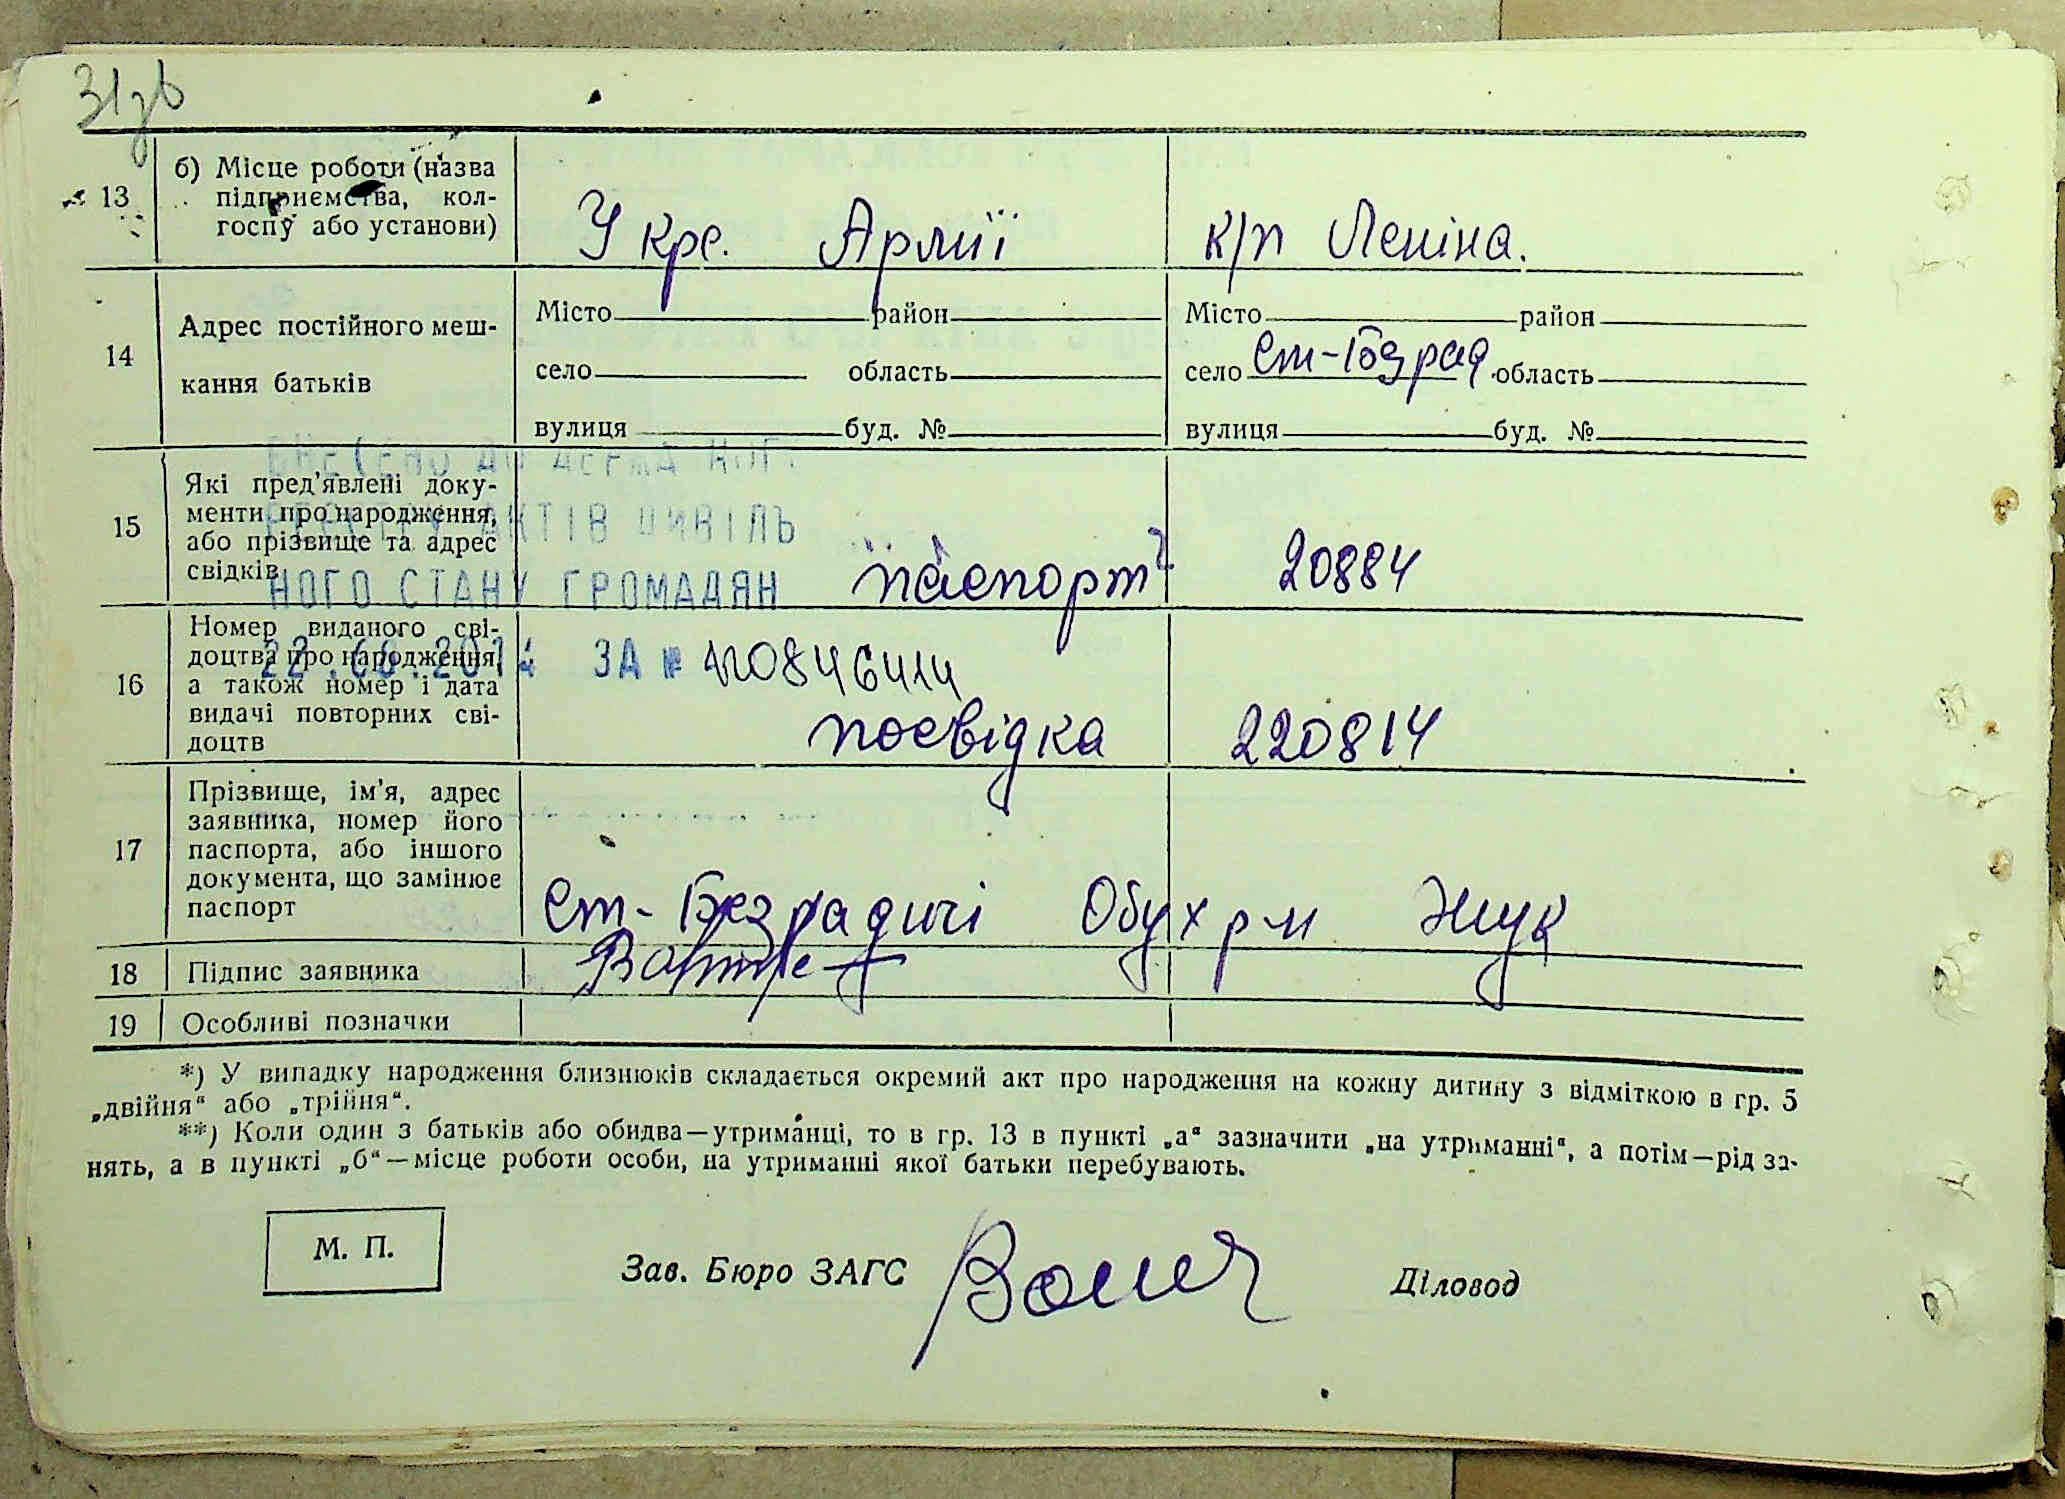 31зв
13
б) Місце роботи (назва
підприємства, кол-
госпу або установи)
У кре. Армії
к/п Леніна.
14
Адрес постійного меш-
кання батьків
Місто район
село область
вулиця буд. №
Місто район
село Ст-Безрад. область
вулиця буд. №
15
Які пред'явлені доку-
менти про народження,
або прізвище та адрес
свідків
паспорт 20884
ВНЕСЕНО ДО ДЕРЖА
РЕЄСТР АКТІВ ЦИВІЛЬ
НОГО СТАНУ ГРОМАДЯН
ЗА №
16
Номер виданого сві-
доцтва про народження,
а також номер і дата
видачі повторних сві-
доцтв
посвідка 220814
17
Прізвище, ім'я, адрес
заявника, номер його
паспорта, або іншого
документа, що замінює
паспорт
Ст-Безрадичі Обух р-н Жук
18
Підпис заявника
19
Особливі позначки
*) У випадку народження близнюків складається окремий акт про народження на кожну дитину з відміткою в гр. 5
„двійня“ або „трійня“.
**) Коли один з батьків або обидва—утриманці, то в гр. 13 в пункті „а“ зазначити „на утриманні“, а потім—рід за-
нять, а в пункті „б“—місце роботи особи, на утриманні якої батьки перебувають.
М. П.
Зав. Бюро ЗАГС
Діловод